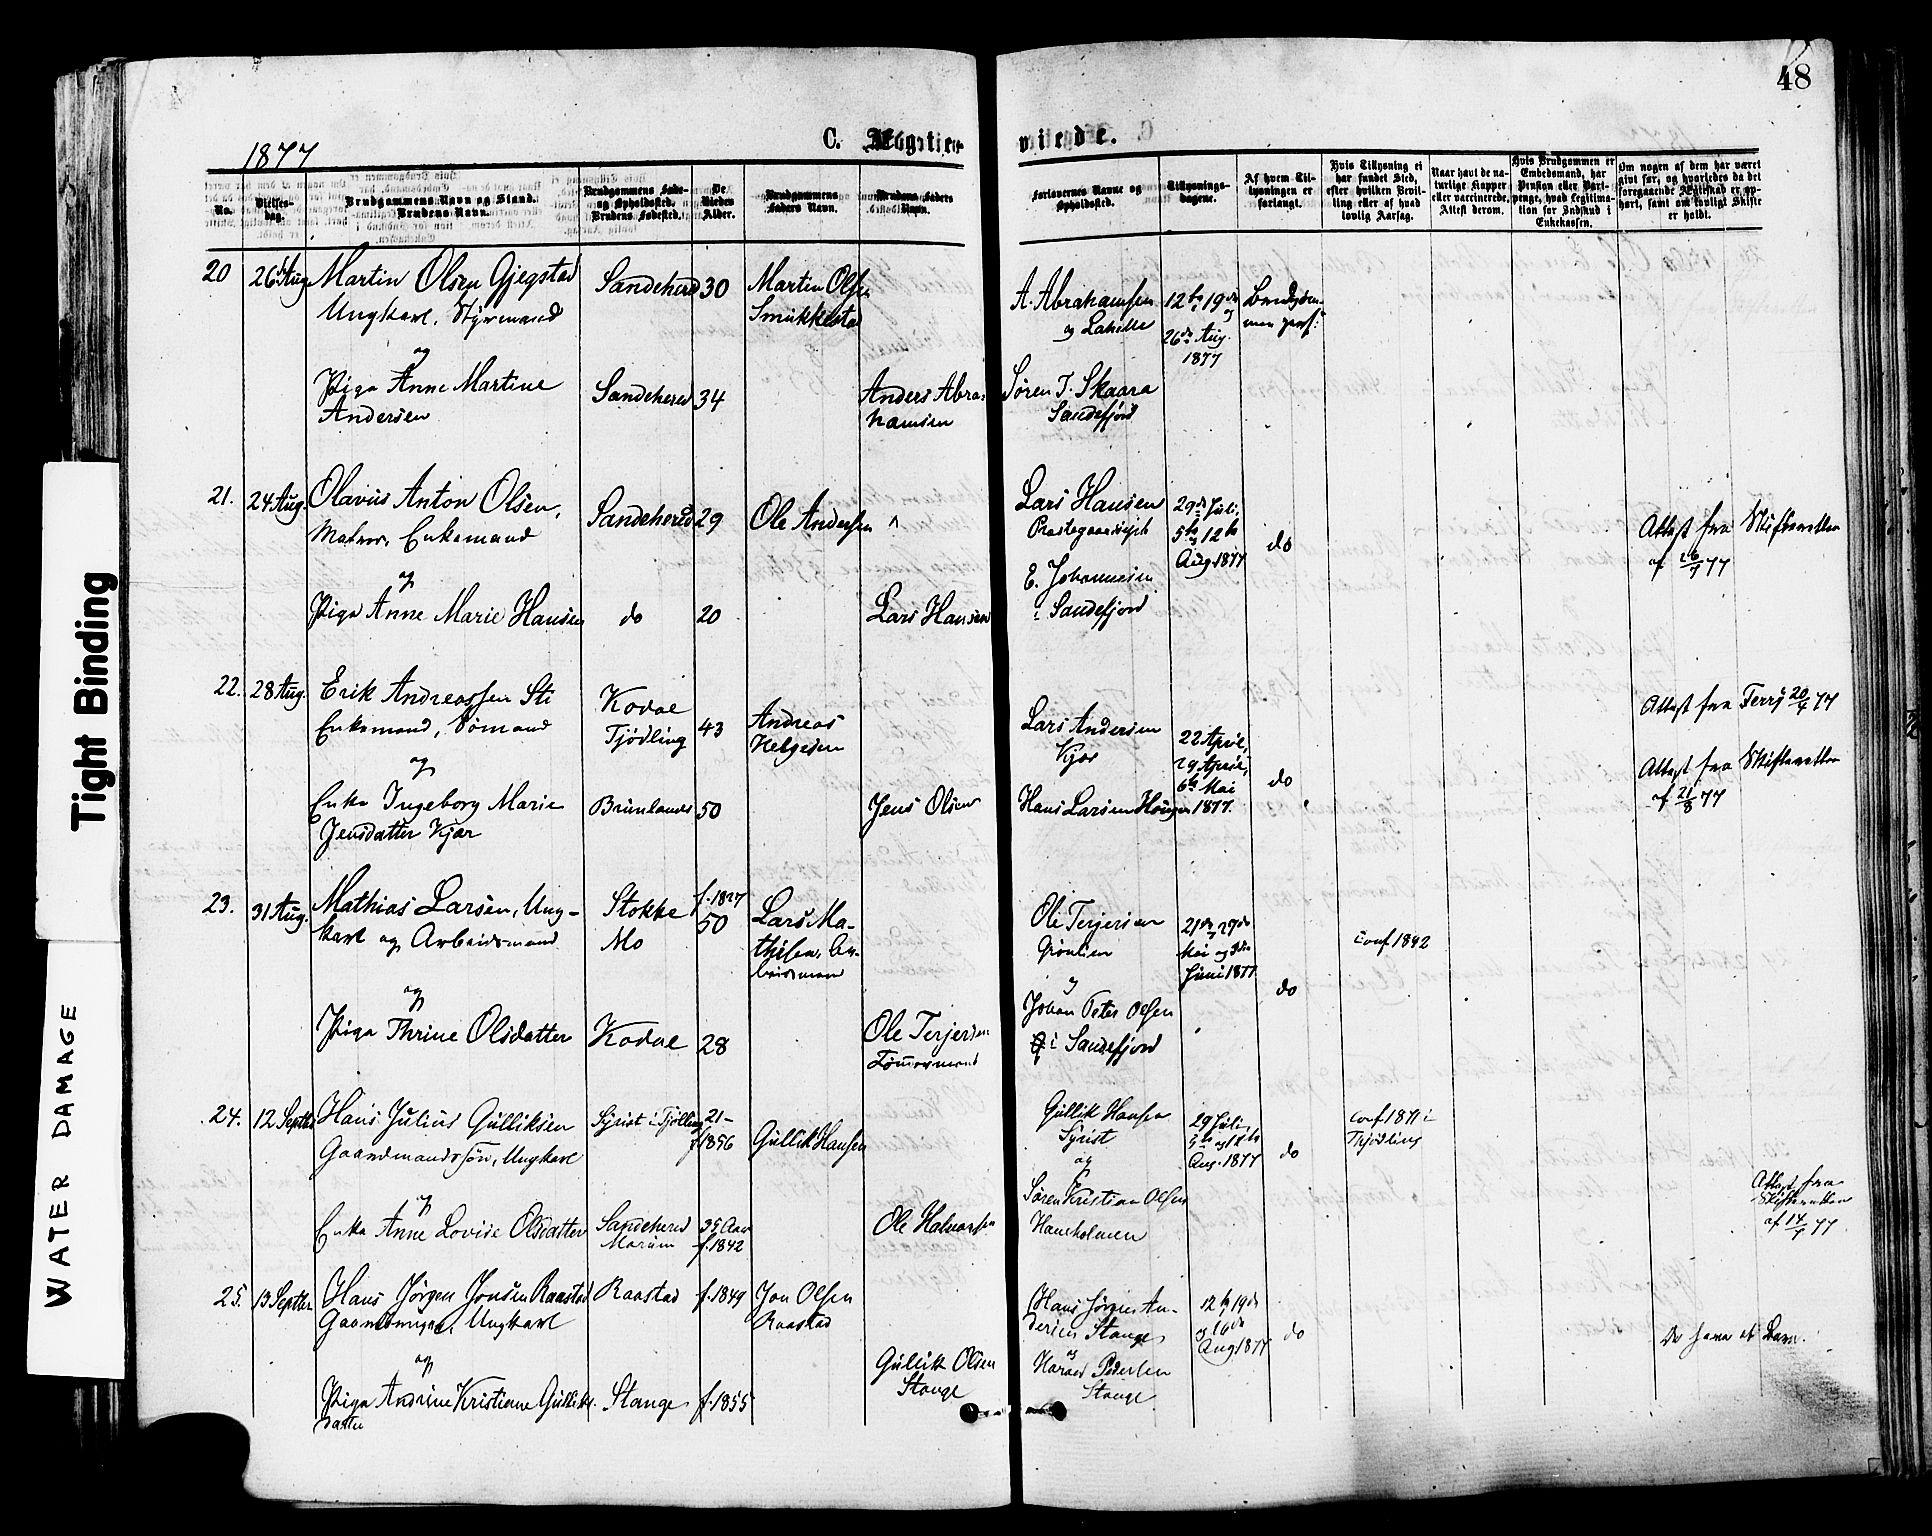 48
1877
C. Ægteviede.
No.
Vielses-
dag.
Brudgommens Navn og Stand.
Brudens Navn.
Brudgommens Føde-
og Opholdssted.
Brudens Fødested.
De
Viedes
Alder.
Brudgommens
Faders Navn.
Brudens Faders
Navn.
Forlovernes Navne og
Opholdssted.
Tillysnings-
dagene.
Af hvem Til-
lysningen er
forlangt.
Hvis Tillysning ei
har fundet Sted,
efter hvilken Bevil-
ling eller af hvad
lovlig Aarsag.
Naar havt de na-
turlige Kopper
eller vaccinerede.
Attest derom.
Hvis Brudgommen er
Embedsmand, har
Pension eller Vart-
penge, hvad Legitima-
tion for Indskud i
Enkekassen.
Om nogen af dem har været
givt før, og hvorledes da det
foregaaende Ægteskab er op-
hørt, samt om lovligt Skifte
er holdt.
20 26de Aug. Martin Olsen Gjegstad Sandeherd 30 Martin Olsen
Ungkarl, Styrmand Smukkestad
og
Pige Anne Martine Sandeherd 34 Anders Abra-
Andersen hamsen
A. Abrahamsen 12te, 19de
og 26de Aug.
1877
Søren T. Skaara
Sandefjord
21. 24 Aug. Olavus Anton Olsen, Sandeherd 29 Ole Andersen
Enkemand
og
Pige Anne Marie Hansen do 20 Lars Hansen
Lars Hansen 29de Juli,
5te, 12te
Aug. 1877 do
E. Johannesen
i Sandefjord
Attest fra Skifteretten
af 26/7 77
22. 28 Aug. Erik Andreassen Sti Kodal 43 Andreas
Enkemand, Sømand Tjødling Helgesen
og
Enke Ingeborg Marie Brunlanes 50 Jens Olsen
Jensdatter Kjær
Lars Andersen
Kjær 22 April,
29 April,
6te Mai
1877. do
Hans Larsen Haugen
Attest fra Ferri 20/4 77
Attest fra Skifteretten
af 21/8 77
23. 31 Aug. Mathias Larsen, Ung- Stokke f. 1827 Lars Ma-
karl og Arbeidsmand Mo 50 thisen, Ar-
beidsmand
og
Pige Thrine Olsdatter Kodal 28 Ole Terjersen
Tømmermand
Ole Terjersen
Grønlien 21de, 29de
Mai og
Juni 1877 conf. 1842
og do
Johan Peter Olsen
i Sandefjord
24. 12 Septbr Hans Julius Gulliksen Syrist i Tjølling 21 - Gullik Hansen
Gaardmandssøn, Ungkarl f 1856
og
Enke Anne Lovise Olsdatter Sandeherd 35 Aar Ole Halvorsen
Marum f. 1842
Gullik Hansen
Syrist 29 Juli,
og Aug. 1877 do conf. 1871 i
Thjødling
Søren Kristian Olsen
Haneholmen
Attest fra
Skifteretten
af 14/7 77
25. 13 Septbr Hans Jørgen Jonsen Raastad Raastad f. 1849 Jon Olsen
Ungkarl Raastad
og
Pige Andrine Kristiane Gulliks- Stange f. 1855 Gullik Olsen
datter Stange
Hans Jørgen An-
dersen Stange 12te, 19de
Aug 1877 do
og
Harald Pedersen
Stange
De have et Barn.
Tight Binding
WATER DAMAGE